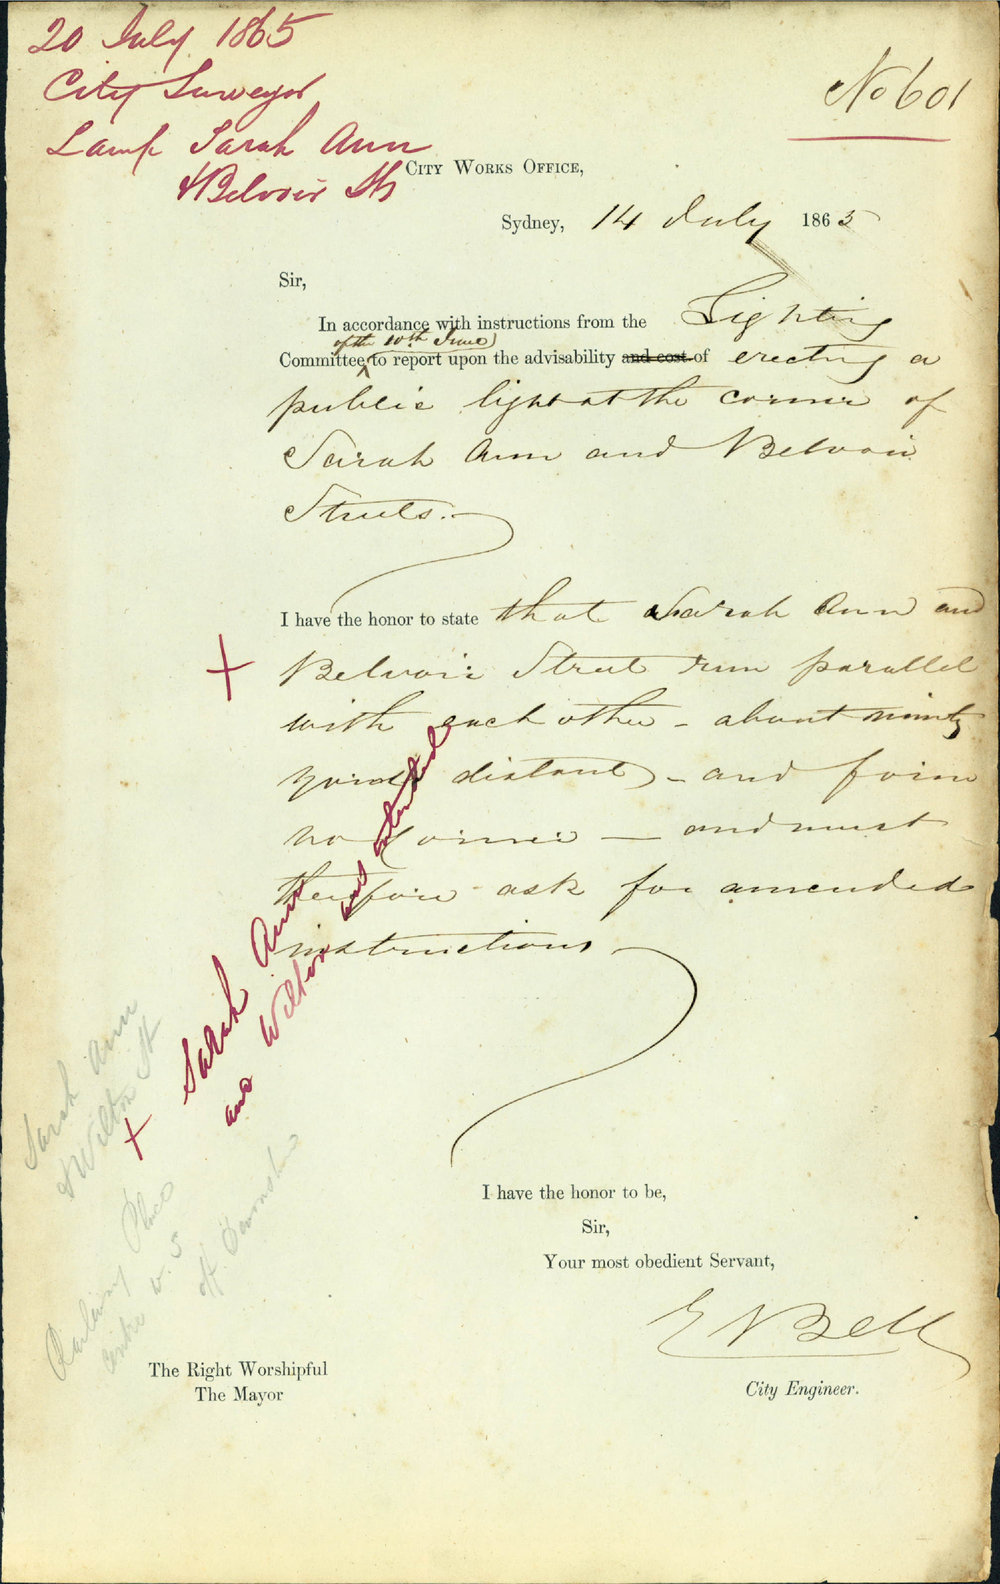 20 July 1865
City Surveyor
Lamp Sarah Ann
& Belvoir Sts
No 601
CITY WORKS OFFICE,
Sydney, 14 July 1865
Sir,
In accordance with instructions from the Lighting
of the 10th June
Committee, to report upon the advisability and cost of erecting a
public light at the corner of
Sarah Ann and Belvoir
Streets.
I have the honor to state that Sarah Ann and
Belvoir Street run parallel
with each other - about ninety
yards distant - and form
no Corner - and must
therefore ask for amended
instructions
+
+ Sarah Ann
and Wilton
intended
Sarah Ann
& Wilton St
Railway Place
off Devonshire
I have the honor to be,
Sir,
Your most obedient Servant,
E Bell
City Engineer.
The Right Worshipful
The Mayor